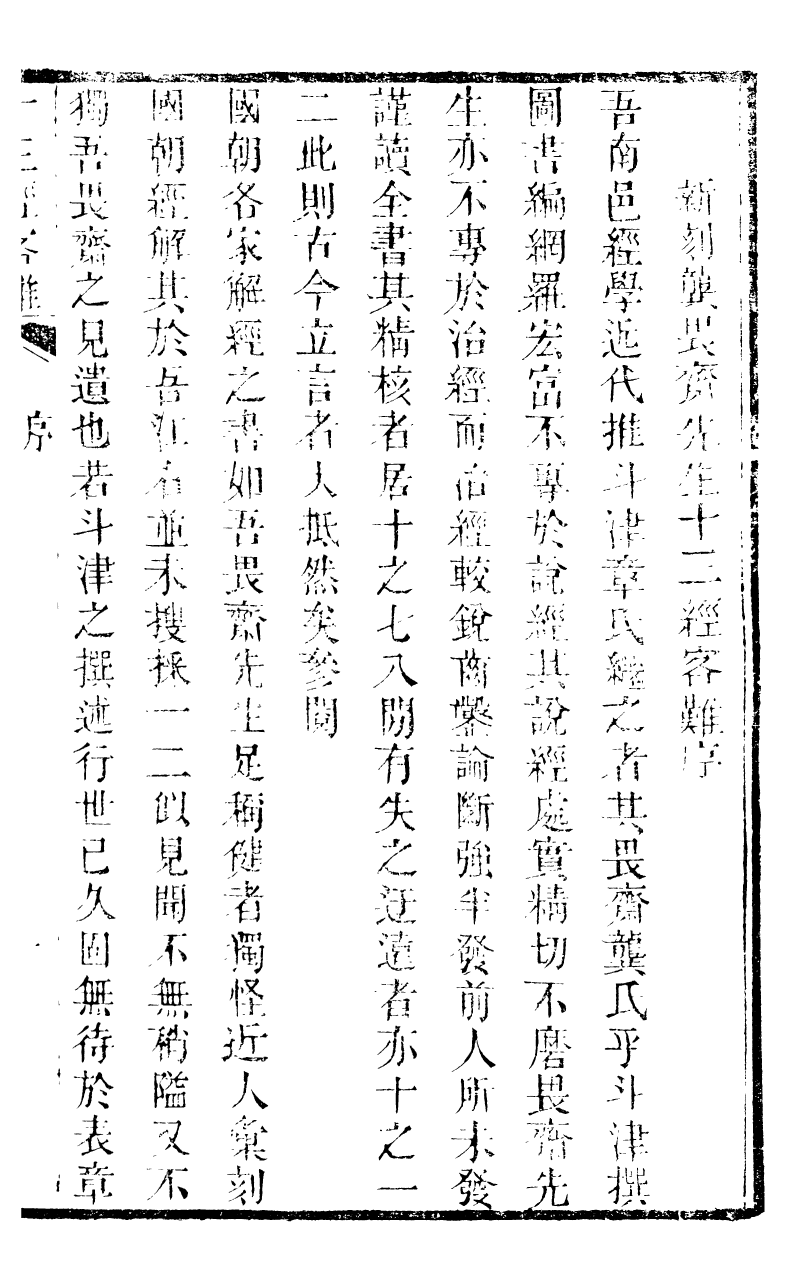 新刻龔畏齋先生十三經客難序
吾南邑經學近代推斗津章氏繼之者其畏齋龔氏乎斗津撰
圖書編網羅宏富不專於說經其說經處實精切不磨畏齋先
生亦不專於治經而治經較銳商鑿論斷強半發前人所未發
謹讀全書其精核者居十之七八閒有失之迂遠者亦十之一
二此則古今立言者人抵然矣參閱
國朝各家解經之書如吾畏齋先生足稱健者獨怪近人彙刻
國朝經解其於吾江右並未搜採一二似見聞不無稍隘又不
獨吾畏齋之見遺也若斗津之撰述行世已久固無待於表章
十三經客難
序